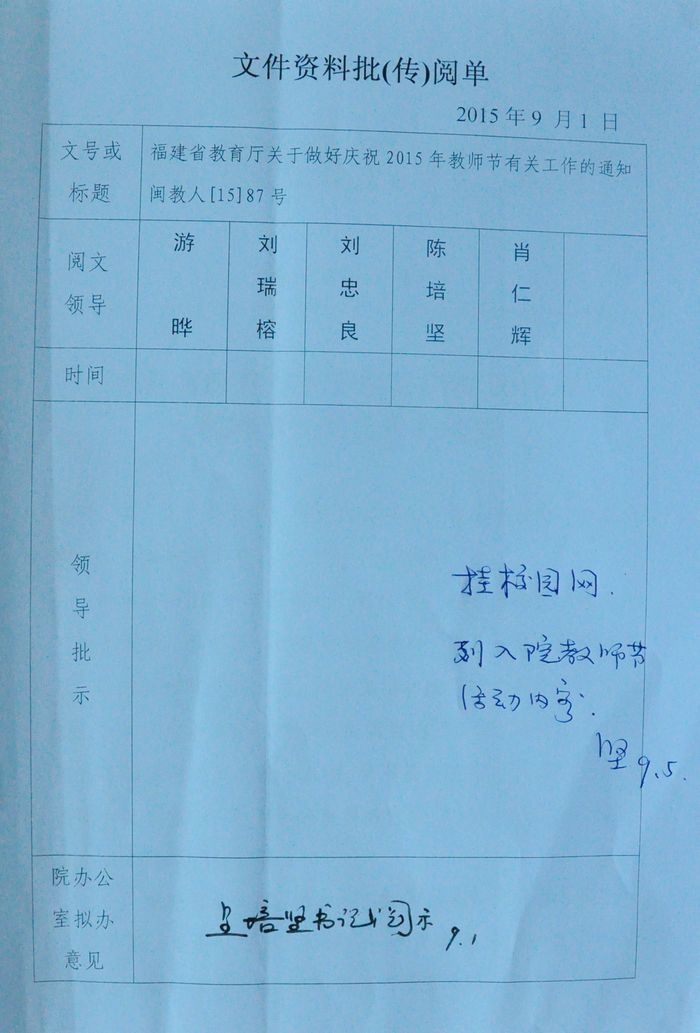 文件资料批(传)阅单
2015年9月1日
文号或标题
福建省教育厅关于做好庆祝2015年教师节有关工作的通知
闽教人[15]87号
阅文领导
游晔
刘瑞榕
刘忠良
陈培坚
肖仁辉
时间
领导批示
挂校园网.
列入院教师节
活动内容.
坚 9.5.
院办公
室拟办
意见
呈培坚书记阅示 9.1